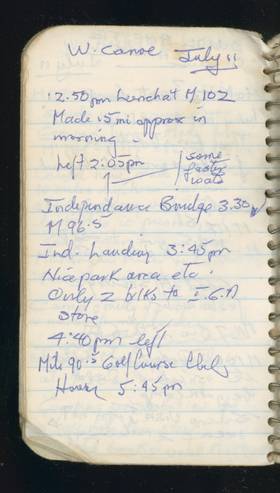 W. Canoe July 11
12.50pm Lunch at M 102
Made 15 mi approx in
morning.
Left 2.05pm some
faster
water
Independance Bridge 3.30
M 96.5
Ind. Landing 3:45pm
Nice park area etc.
Only 2 blks to I.G.A
Store
4:40pm left
Mile 90.5 Golf Course Club
House 5:45pm